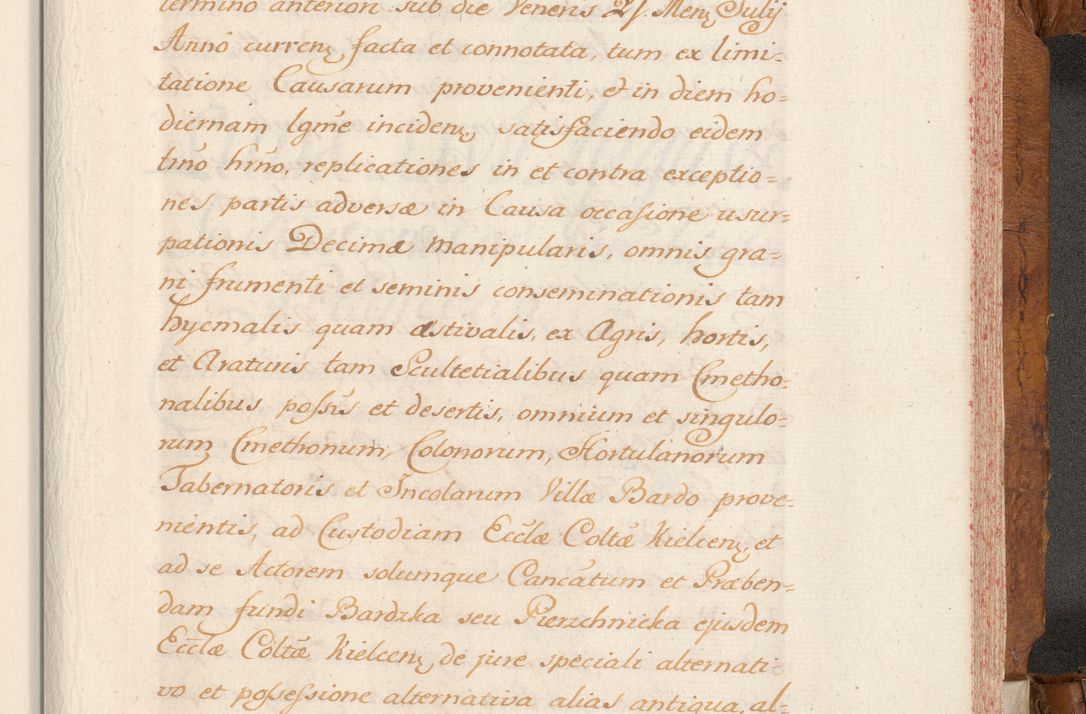 termino anteriori sub die Veneris 27. Menş Julij
Annô currenş, facta et connotata, tum ex limi-
tatione Causarum provenienti, & in diem ho=
diernam lgm̄e incidenş, satisfaciendo eidem
tm̄o hm̄o, replicationes in et contra exceptio=
nes partis adversæ in Causa occasione usur=
pationis Decimæ manipularis, omnis gra=
ni frumenti et seminis conseminationis tam
hyemalis quam æstivalis, ex Agris, hortis,
et Araturis tam Scultetialibus quam Cmetho=
nalibus poss̄is et desertis, omnium et singulo=
rum Cmethonum, Colonorum, Hortulanorum
Tabernatoris et Incolarum Villæ Bardo prove-
nientis, ad Custodiam Eccl̄æ Colt̄æ Kielcenş, et
ad se Actorem solumque Canc̄atum et Præben=
dam fundi Bardzka seu Pierzchnicka ejusdem
Eccl̄æ Colt̄æ Kielcenş, de jure speciali alternati-
vo et possessione alternativa alias antiqua, al=